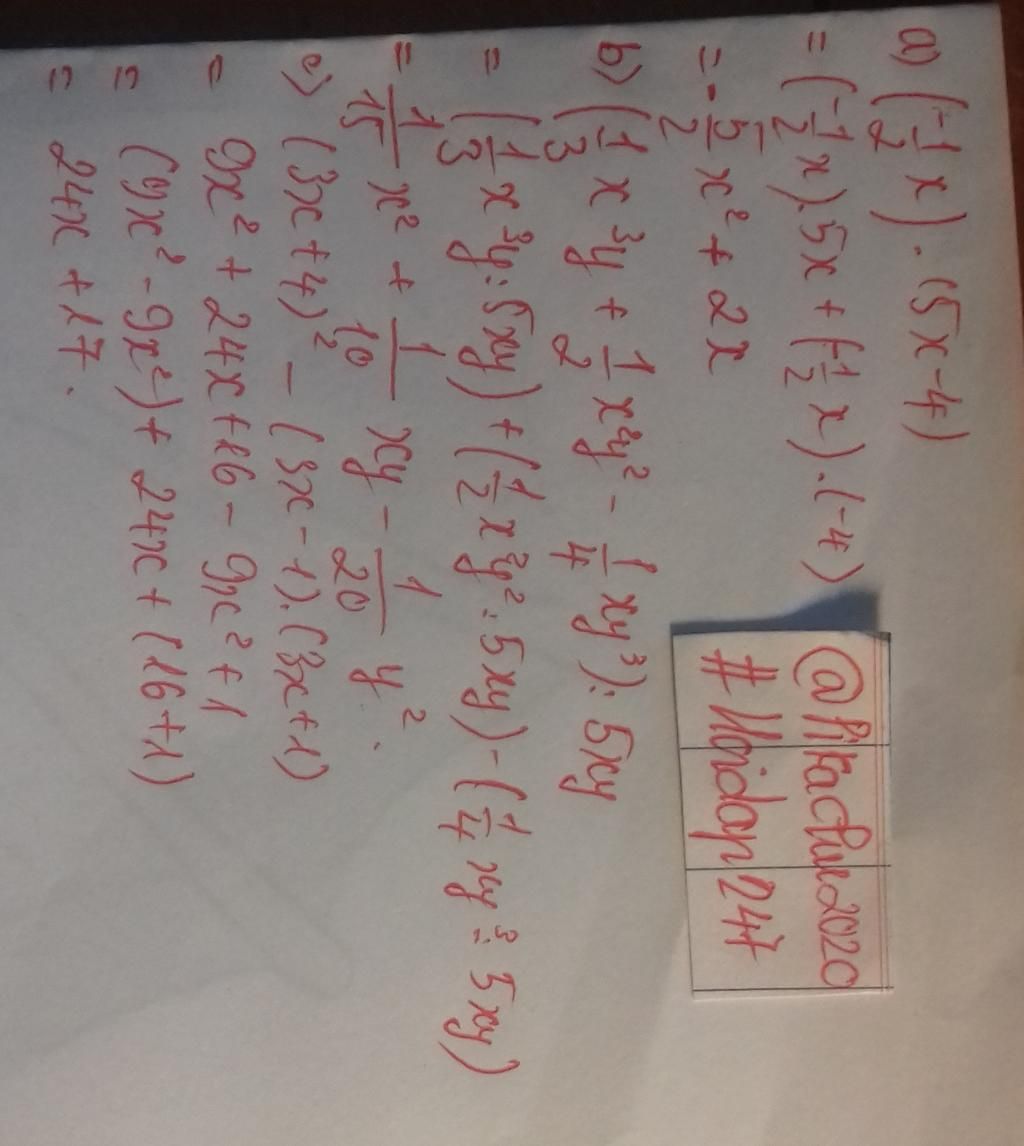 a) (-1/2 x) . (5x-4)
= (-1/2 x).5x + (-1/2 x).(-4)
= - 5/2 x² + 2x
b) (1/3 x³y + 1/2 x²y² - 1/4 xy³) : 5xy
= (1/3 x³y : 5xy) + (1/2 x²y² : 5xy) - (1/4 xy³ : 5xy)
= 1/15 x² + 1/10 xy - 1/20 y².
c) (3x+4)² - (3x-1).(3x+1)
= 9x² + 24x + 16 - 9x² + 1
= (9x² - 9x²) + 24x + (16+1)
= 24x + 17.
@Pikachue2020
#Hoidap247